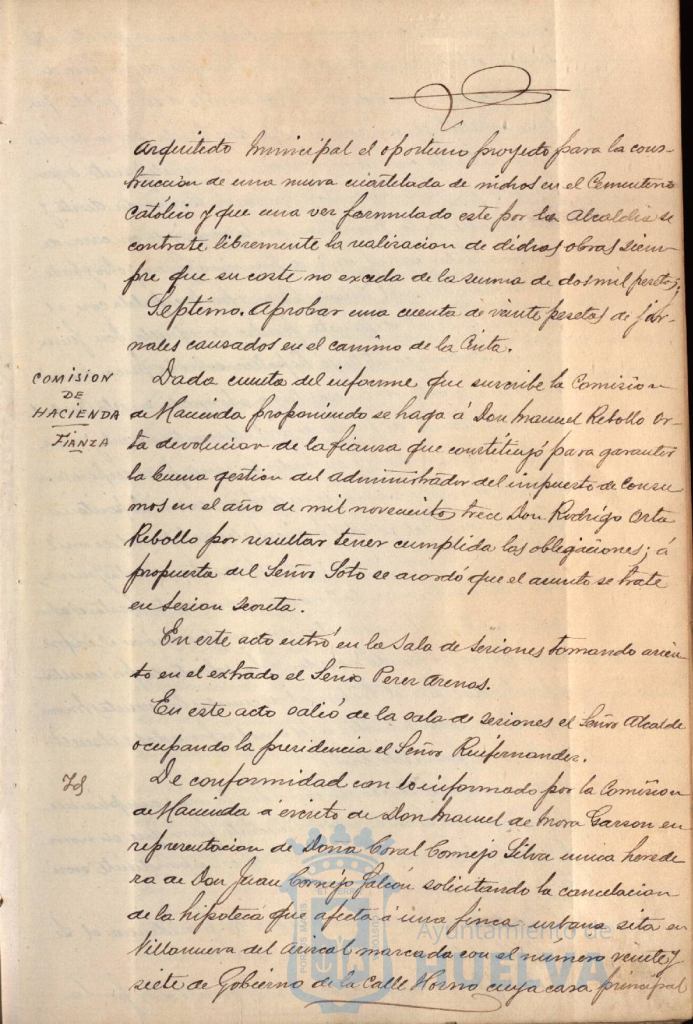 Arquitecto Municipal el oportuno proyecto para la cons-
trucción de una nueva cuartelada de nichos en el Cementerio
Católico y que una vez formulado este por la Alcaldia se
contrate libremente la realizacion de dichas obras siem-
pre que su coste no exceda de la suma de dos mil pesetas.
Septimo. Aprobar una cuenta de veinte pesetas de jor-
nales causados en el camino de la Cinta.
COMISION
DE
HACIENDA
FIANZA
Dada cuenta del informe que suscribe la Comision
de Hacienda proponiendo se haga á Don Manuel Rebollo Or-
ta devolucion de la fianza que constituyó para garantir
la buena gestion del administrador del impuesto de Consu-
mos en el año de mil novecientos trece Don Rodrigo Orta
Rebollo por resultar tener cumplida las obligaciones; á
propuesta del Señor Soto se acordó que el asunto se trate
en sesion secreta.
En este acto entró en la sala de sesiones tomando asien-
to en el estrado el Señor Perez Arenas.
En este acto salió de la sala de sesiones el Señor Alcalde
ocupando la presidencia el Señor Ruifernandez.
Id
De conformidad con lo informado por la Comision
de Hacienda á escrito de Don Manuel de Mora Garzon en
representacion de Doña Coral Cornejo Silva unica herede-
ra de Don Juan Cornejo Falcón solicitando la cancelacion
de la hipoteca que afecta á una finca urbana sita en
Villanueva del Ariscal marcada con el numero veinte y
siete de Gobierno de la Calle Horno cuya casa principal
Ayuntamiento de
HUELVA